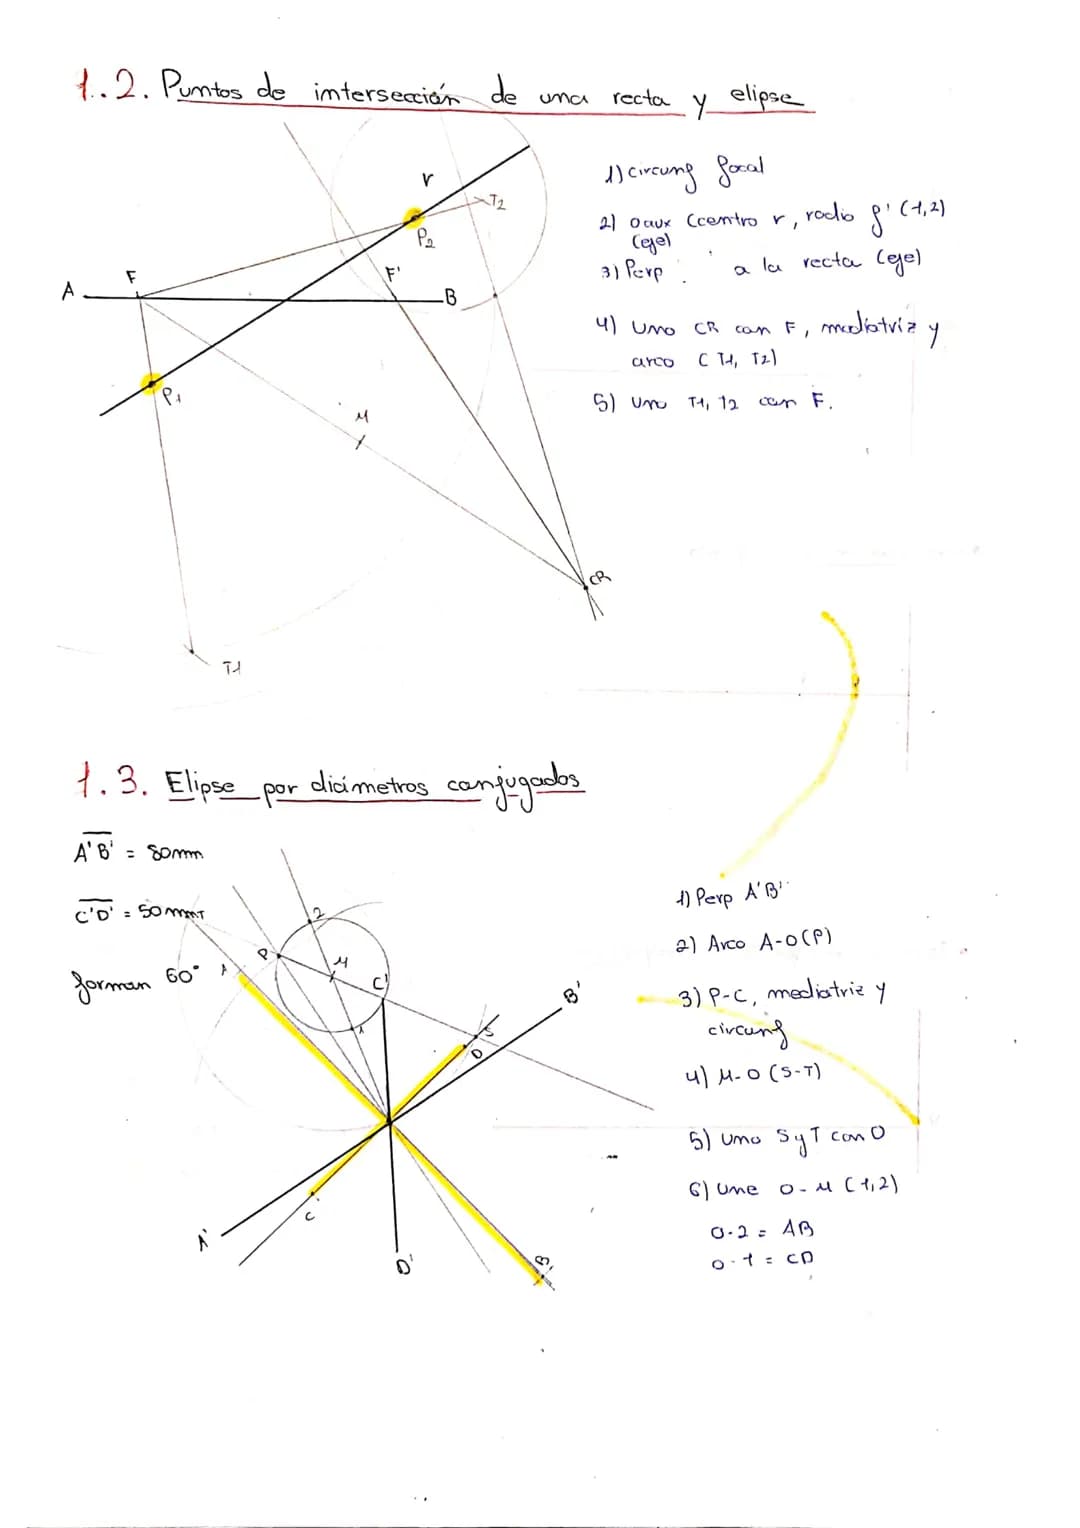 1.2. Puntos de intersección de una recta y elipse
r
T2
P2
F
F'
A
B
P1
M
CR
T1
1) circunf focal
2) O aux (centro r, radio f' (1,2)
(eje)
3) Perp a la recta (eje)
4) Uno CR con F, mediatriz y
arco (T1, T2)
5) Uno T1, T2 con F.
1.3. Elipse por diámetros conjugados
A'B' = 80mm
C'D' = 50mm
T
forman 60°
2
P
M
A
C'
B'
1
S
D
C
A'
D'
B
1) Perp A'B'
2) Arco A-O (P)
3) P-C, mediatriz y
circunf
4) M-O (S-T)
5) Uno S y T con O
6) Une O-M (1,2)
O-2 = AB
O-1 = CD